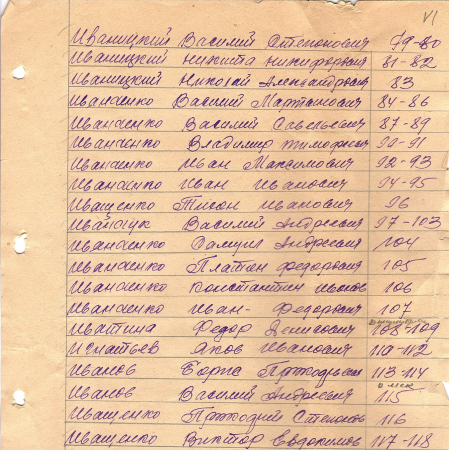 VI
Иваницкий Василий Степанович 79-80
Иваницкий Никита Никифорович 81-82
Иваницкий Николай Александрович 83
Иваненко Василий Мартынович 84-86
Иваненко Василий Савельевич 87-89
Иваненко Владимир Тимофеевич 90-91
Иваненко Иван Максимович 92-93
Иваненко Иван Иванович 94-95
Иващенко Тихон Иванович 96
Иванчук Василий Андреевич 97-103
Иваненко Самуил Андреевич 104
Иваненко Платон Федорович 105
Иваненко Константин Иванов 106
Иваненко Иван Федорович 107
Ивашина Федор Денисович 108-109
Игнатьев Яков Иванович 110-112
Иванов Борис 113-114
Омск
Иванов Василий Андреевич 115
Иващенко Степанов 116
Иващенко Виктор Евдокимов 117-118